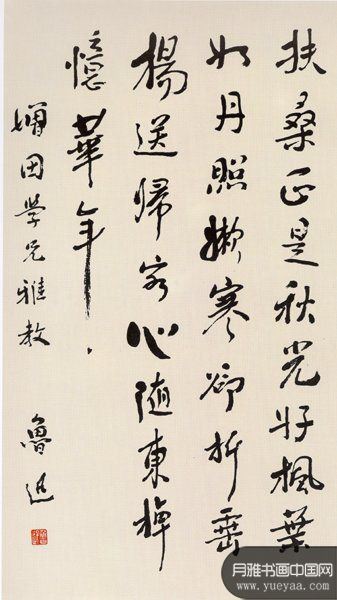 扶桑正是秋光好楓葉
如丹照嫩寒卻折垂
楊送歸客心随東棹
憶華年
增田學兄雅教
魯迅
月雅书画中国网
www.yueyaa.com